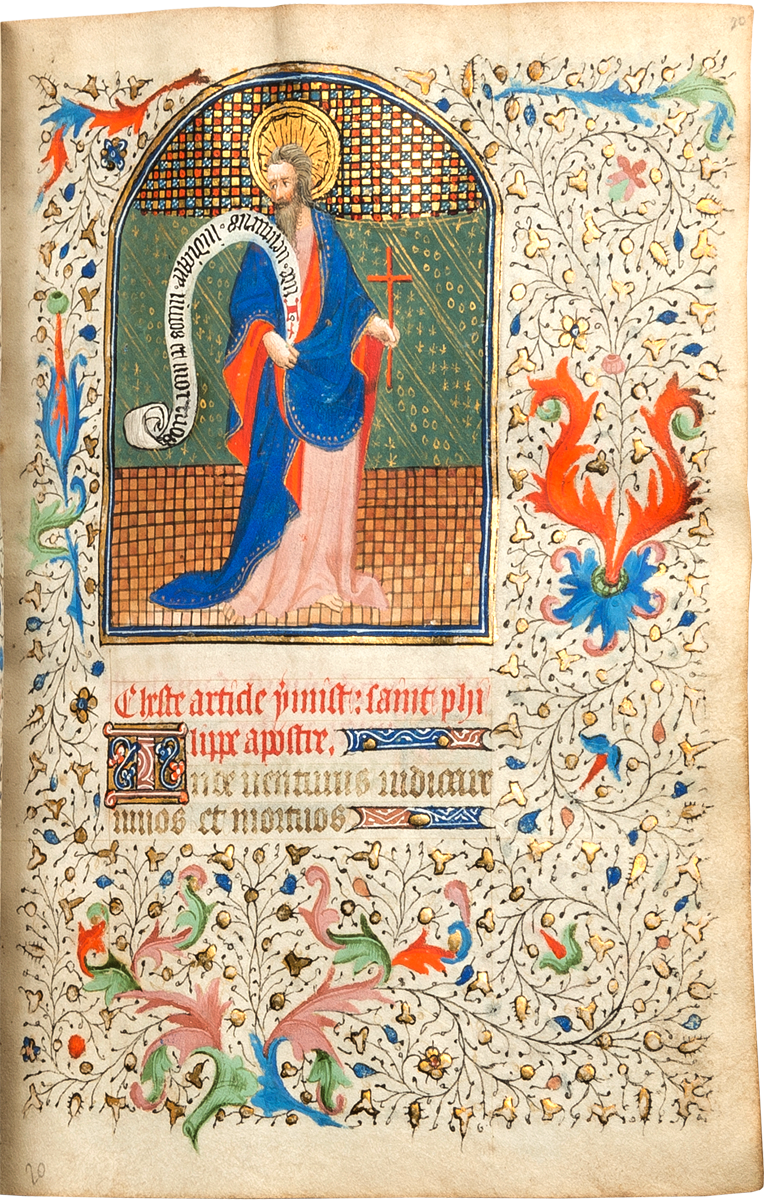 20
venturus · iudicare · vivos et mortuos
Cheste article ÿ mist : saint phi
lippe apostre.
Inde venturus iudicare
vivos et mortuos
20